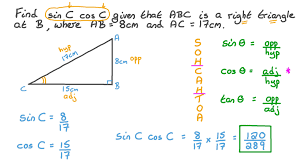 Find sin C cos C given that ABC is a right triangle
at B, where AB = 8cm and AC = 17cm.
A
hyp
17cm
8cm opp
C
15cm
adj
B
S
O
H
C
A
H
T
O
A
sin θ = opp/hyp
cos θ = adj/hyp *
tan θ = opp/adj
sin C = 8/17
cos C = 15/17
sin C cos C = 8/17 × 15/17 = 120/289